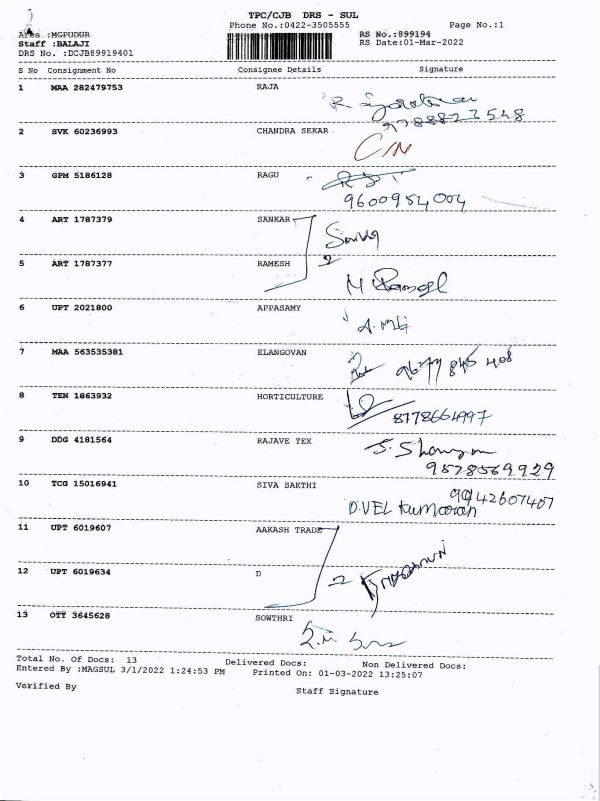 TPC/CJB DRS - SUL
Phone No.:0422-3505555
Page No.:1
Area :MGPUDUR
RS No.:899194
Staff :BALAJI
RS Date:01-Mar-2022
DRS No. :DCJB89919401
S No Consignment No Consignee Details Signature
1 MAA 282479753 RAJA
2 SVK 60236993 CHANDRA SEKAR
3 GPM 5186128 RAGU
9600954004
4 ART 1787379 SANKAR
5 ART 1787377 RAMESH
2
6 UPT 2021800 APPASAMY
7 MAA 563535381 ELANGOVAN
9677 845 408
8 TEN 1863932 HORTICULTURE
8778664997
9 DDG 4181564 RAJAVE TEX
9578569929
10 TCG 15016941 SIVA SAKTHI
9942607407
D.VEL kumaran
11 UPT 6019607 AAKASH TRADE
12 UPT 6019634 D
2
13 OTY 3645628 SOWTHRI
Total No. Of Docs: 13 Delivered Docs: Non Delivered Docs:
Entered By :MAGSUL 3/1/2022 1:24:53 PM Printed On: 01-03-2022 13:25:07
Verified By
Staff Signature